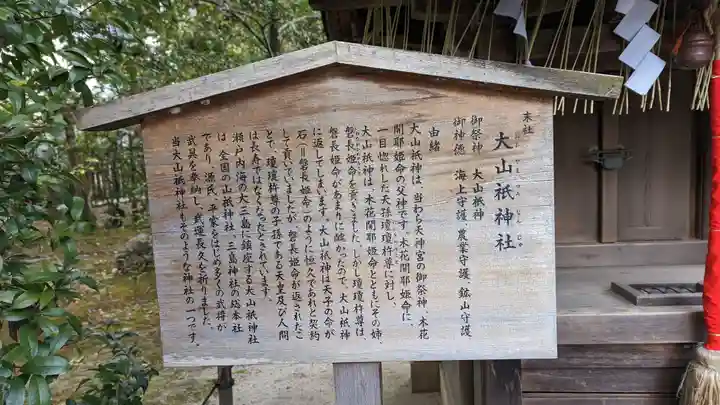 末社
大山祇神社
御祭神 大山祇神
御神徳 海上守護 農業守護 鉱山守護
由緒
大山祇神は、当わら天神宮の御祭神、木花
開耶姫命の父神です。木花開耶姫命に、
一目惚れした天孫瓊瓊杵尊に対し、
大山祇神は、木花開耶姫命とともにその姉、
磐長姫命を貢ぎました。しかし瓊瓊杵尊は、
磐長姫命があまりに醜かったので、大山祇神
に返してしまいます。大山祇神は天子の命が
石(=磐長姫命)のように恒久であれと契約
して貢いでいましたが、磐長姫命が返されたこ
とで、瓊瓊杵尊の子孫である天皇及び人間
は長寿ではなくなったとされています。
瀬戸内海の大三島に鎮座する大山祇神社
は、全国の山祇神社、三島神社の総本社
であり、源氏、平家をはじめ多くの武将が
武具を奉納し、武運長久を祈りました。
当大山祇神社もそのような神社の一つです。